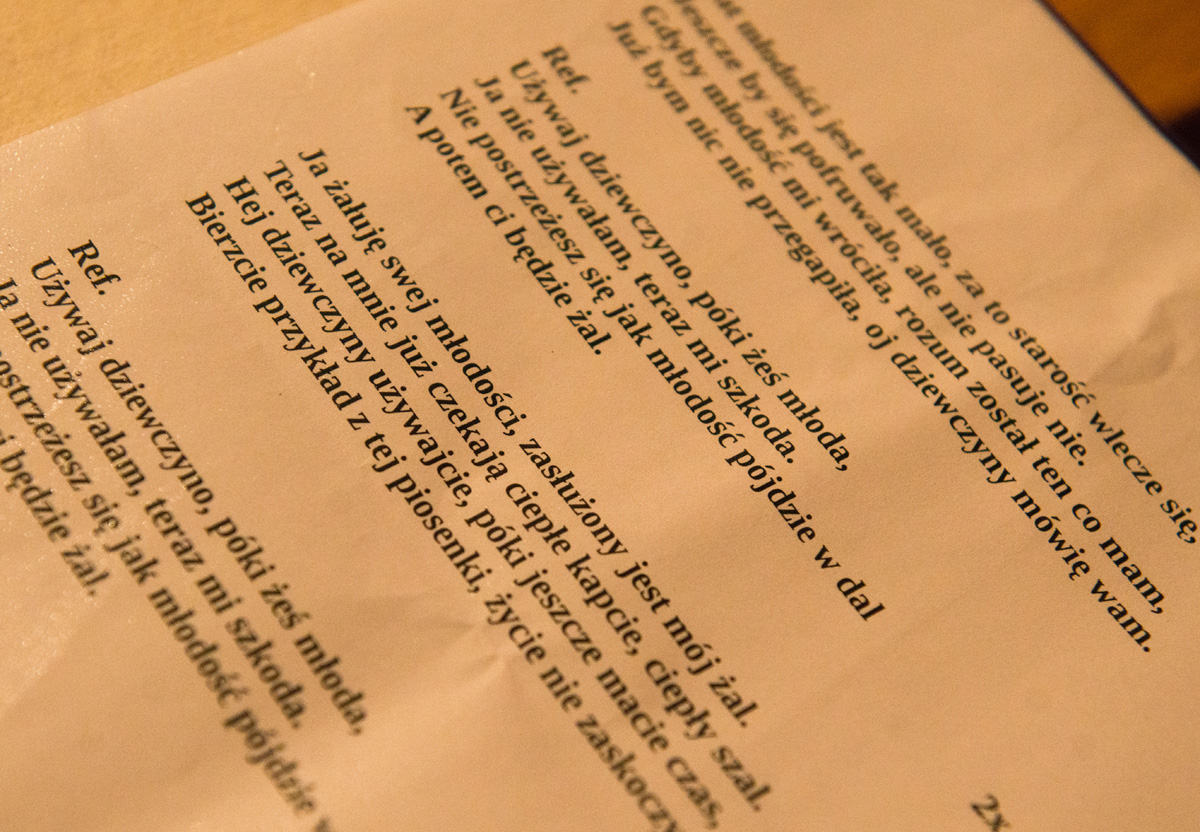 młodości jest tak mało, za to starość wlecze się,
Jeszcze by się pofruwało, ale nie pasuje nie.
Gdyby młodość mi wróciła, rozum został ten co mam,
Już bym nic nie przegapiła, oj dziewczyny mówię wam.
Ref.
Używaj dziewczyno, póki żeś młoda,
Ja nie używałam, teraz mi szkoda.
Nie postrzeżesz się jak młodość pójdzie w dal
A potem ci będzie żal.
Ja żałuję swej młodości, zasłużony jest mój żal.
Teraz na mnie już czekają ciepłe kapcie, ciepły szal.
Hej dziewczyny używajcie, póki jeszcze macie czas,
Bierzcie przykład z tej piosenki, życie nie zaskoczy
2x
Ref.
Używaj dziewczyno, póki żeś młoda,
Ja nie używałam, teraz mi szkoda.
postrzeżesz się jak młodość pójdzie w
będzie żal.